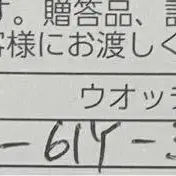 す。贈答品、
客様にお渡しく
ウオッ
-61Y-